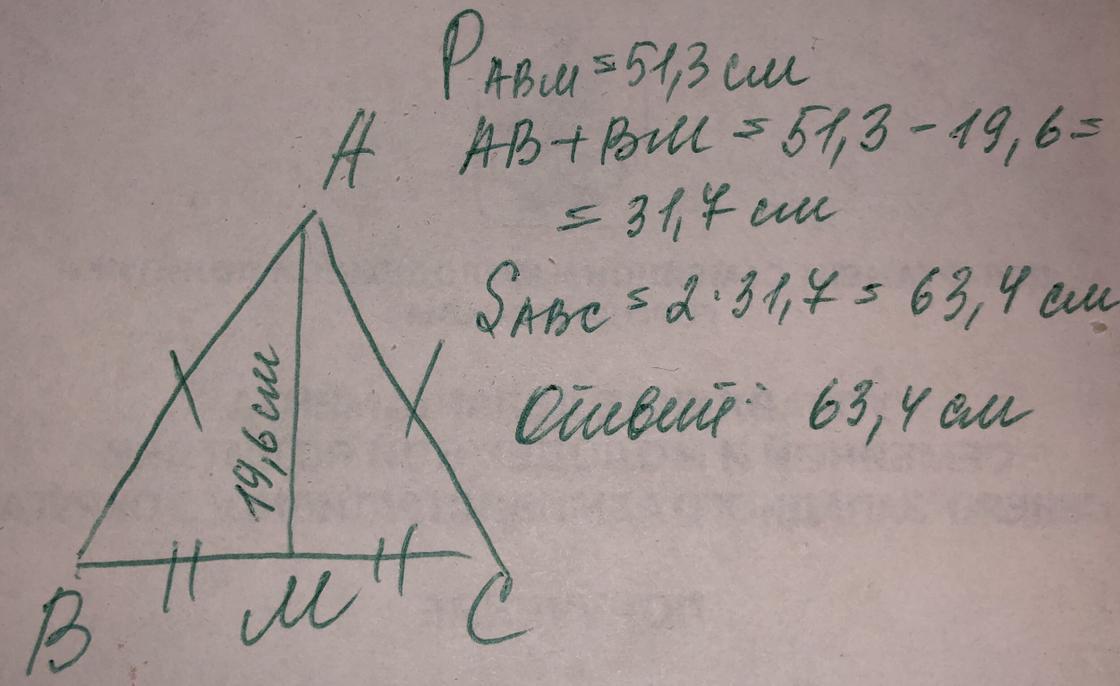 P ABM = 51,3 см
A
AB + BM = 51,3 - 19,6 =
= 31,7 см
S ABC = 2 · 31,7 = 63,4 см
Ответ: 63,4 см
19,6 см
B M C